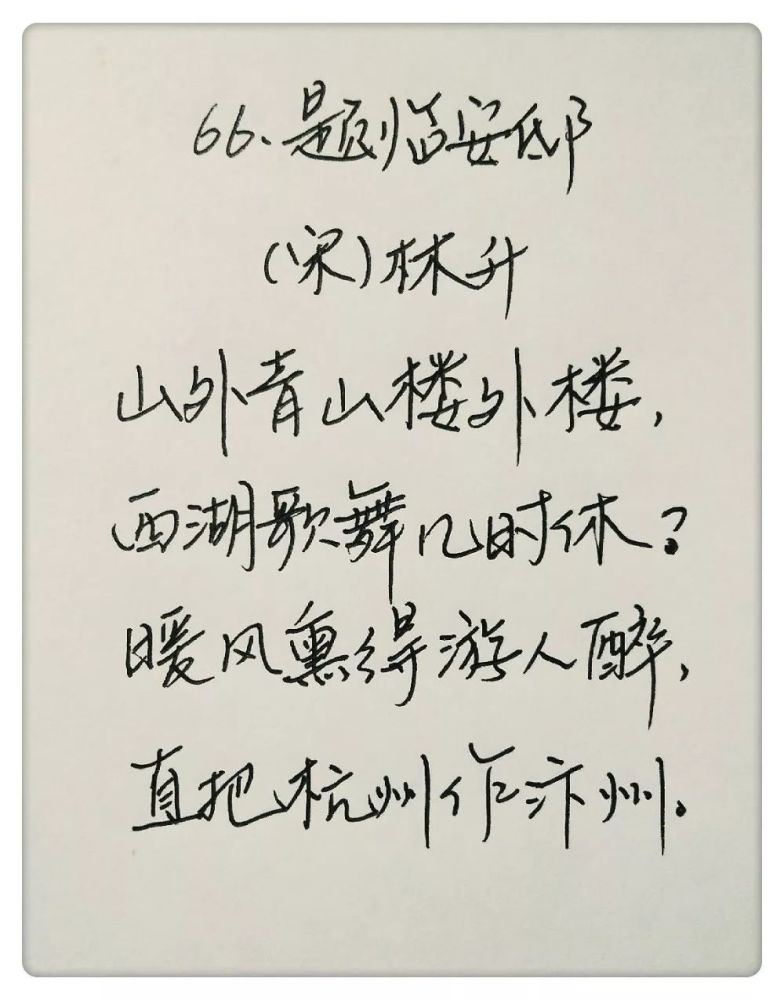 66、题临安邸
(宋)林升
山外青山楼外楼,
西湖歌舞几时休?
暖风熏得游人醉,
直把杭州作汴州。